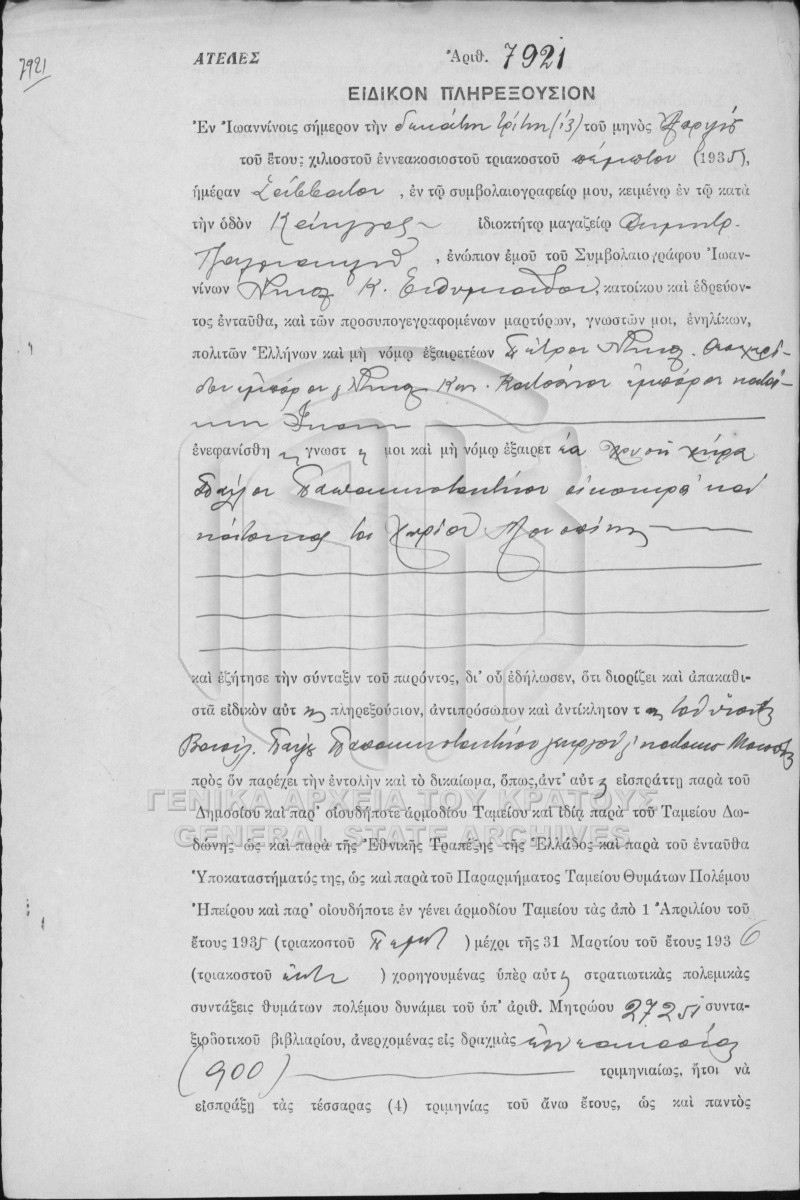 7921
ΑΤΕΛΕΣ Ἀριθ. 7921
ΕΙΔΙΚΟΝ ΠΛΗΡΕΞΟΥΣΙΟΝ
Ἐν Ἰωαννίνοις σήμερον τὴν δεκάτην τρίτην (13) τοῦ μηνὸς
τοῦ ἔτους χιλιοστοῦ ἐννεακοσιοστοῦ τριακοστοῦ πέμπτου (1935),
ἡμέραν Σάββατον, ἐν τῷ συμβολαιογραφείῳ μου, κειμένῳ ἐν τῷ κατὰ
τὴν ὁδὸν ἰδιοκτήτῳ μαγαζείῳ
, ἐνώπιον ἐμοῦ τοῦ Συμβολαιογράφου Ἰωαν-
νίνων Νικολ. Κ. Εὐθυμιάδου, κατοίκου καὶ ἑδρεύον-
τος ἐνταῦθα, καὶ τῶν προσυπογεγραφομένων μαρτύρων, γνωστῶν μοι, ἐνηλίκων,
πολιτῶν Ἑλλήνων καὶ μὴ νόμῳ ἐξαιρετέων Πέτρου Νικολ.
ἐμπόρου Νικολ. Κων. ἐμπόρου κατοί-
κων
ἐνεφανίσθη η γνωστ η μοι καὶ μὴ νόμῳ ἐξαιρετ έα χήρα
Παύλου Παπακωνσταντίνου οἰκοκυρὰ καὶ
κάτοικος τοῦ χωρίου
καὶ ἐζήτησε τὴν σύνταξιν τοῦ παρόντος, δι' οὗ ἐδήλωσεν, ὅτι διορίζει καὶ ἀποκαθι-
στᾶ εἰδικὸν αὐτ ης πληρεξούσιον, ἀντιπρόσωπον καὶ ἀντίκλητον τ
Βασίλ. Παύλ. Παπακωνσταντίνου
πρὸς ὃν παρέχει τὴν ἐντολὴν καὶ τὸ δικαίωμα, ὅπως, ἀντ' αὐτ ῆς εἰσπράττῃ παρὰ τοῦ
Δημοσίου καὶ παρ' οἱουδήποτε ἁρμοδίου Ταμείου καὶ ἰδίᾳ παρὰ τοῦ Ταμείου Δω-
δώνης ὡς καὶ παρὰ τῆς Ἐθνικῆς Τραπέζης τῆς Ἑλλάδος καὶ παρὰ τοῦ ἐνταῦθα
Ὑποκαταστήματός της, ὡς καὶ παρὰ τοῦ Παραρμήματος Ταμείου Θυμάτων Πολέμου
Ἠπείρου καὶ παρ' οἱουδήποτε ἐν γένει ἁρμοδίου Ταμείου τὰς ἀπὸ 1 Ἀπριλίου τοῦ
ἔτους 1935 (τριακοστοῦ πέμπτ) μέχρι τῆς 31 Μαρτίου τοῦ ἔτους 1936
(τριακοστοῦ ἕκτου) χορηγουμένας ὑπὲρ αὐτ ῆς στρατιωτικὰς πολεμικὰς
συντάξεις θυμάτων πολέμου δυνάμει τοῦ ὑπ' ἀριθ. Μητρώου 27251 συντα-
ξιοδοτικοῦ βιβλιαρίου, ἀνερχομένας εἰς δραχμὰς ἐννεακοσίας
(900) τριμηνιαίως, ἤτοι νὰ
εἰσπράξῃ τὰς τέσσαρας (4) τριμηνίας τοῦ ἄνω ἔτους, ὡς καὶ παντὸς
ΓΕΝΙΚΑ ΑΡΧΕΙΑ ΤΟΥ ΚΡΑΤΟΥΣ
GENERAL STATE ARCHIVES